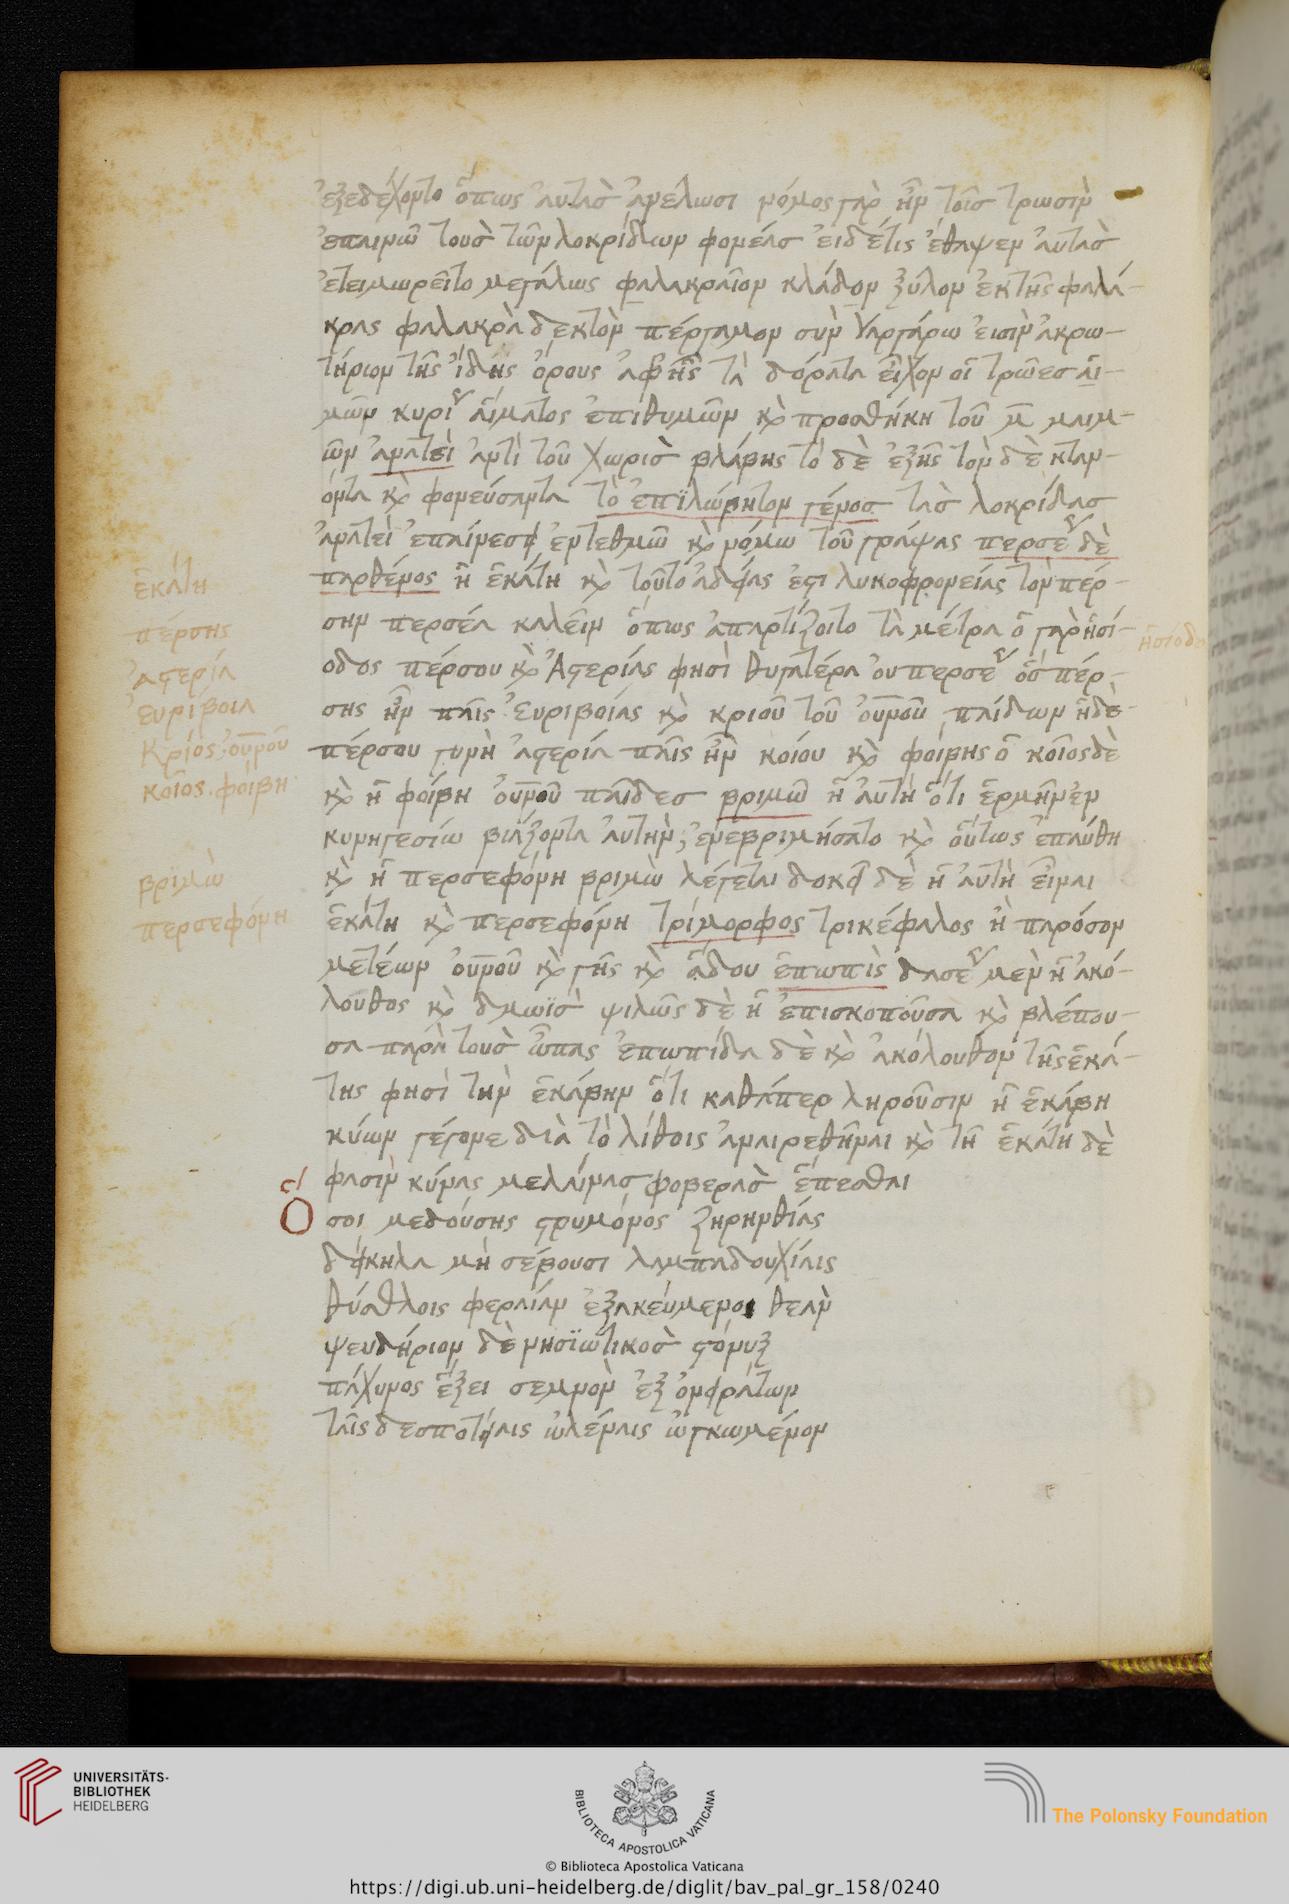 ἐξεδέχοντο ὅπως αὐτὰς ἀνέλωσι νόμος γὰρ ἦν τοῖς τρωσὶν
ἐπαινῶ τοὺς τῶν λοκρίδων φονέας εἰ δέ τις ἔθαψεν αὐτὰς
ἐτειμωρεῖτο μεγάλως φαλακραῖον κλάδον ξύλον ἐκ τῆς φαλά-
κρας φαλακρὰ δεκτὸν πέργαμον σὺν γαργάρω εἰσὶν ἀκρω-
τήριον τῆς ἴδης ὄρους ἀφ' ἧς τὰ δόρατα εἶχον οἱ τρῶες αἱ-
μῶν κυρί αἵματος ἐπιθυμῶν κ προσθήκη τοῦ μ̄ μαιμ-
ῶν ἀνατεὶ ἀντὶ τοῦ χωρὶς βλάβης τὸ δὲ ἑξῆς τὸν δὲ κταν-
όντα κ φονεύσαντα τὸ ἐπϊλώβητον γένος τὰς λοκρίδας
ἀνατεὶ ἐπαίνεσ ἐντεθμῶ κ νόμω τοῦ γράψας περσέ δὲ
παρθένος ἡ ἑκάτη κ τοῦτο ἀδείας ἐστι λυκοφρονείας τὸν πέρ-
σην περσέα καλεῖν ὅπως ἀπαρτίζοιτο τὰ μέτρα ὁ γὰρ ἡσί-
οδος πέρσου κ Ἀστερίας φησὶ θυγατέρα οὐ περσέ ὃς πέρ-
σης ἦν παῖς Εὐριβοίας κ κριοῦ τοῦ οὐνοῦ παίδων ἡ δὲ
πέρσου γυνὴ ἀστερία παῖς ἦν κοίου κ φοίβης ὁ κοῖος δὲ
κ ἡ φοίβη οὐνοῦ παῖδες βριμῶ ἡ αὐτὴ ὅτι ἑρμῆν ἐν
κυνηγεσίω βιάζοντα αὐτὴν ἐνεβριμήσατο κ οὕτως ἐπαύθη
κ ἡ περσεφόνη βριμὼ λέγεται δοκεῖ δὲ ἡ αὐτὴ εἶναι
ἑκάτη κ περσεφόνη τρίμορφος τρικέφαλος ἢ παρόσον
μετέων οὐνοῦ κ γῆς κ ᾅδου ἑπωπὶς δασέ μὲν ἡ ἀκό-
λουθος κ δμωῒς ψιλῶς δὲ ἡ ἐπισκοποῦσα κ βλέπου-
σα παρὰ τοὺς ὦπας ἐπωπίδα δὲ κ ἀκόλουθον τῆς ἑκά-
της φησὶ τὴν ἑκάβην ὅτι καθάπερ ληροῦσιν ἡ ἑκάβη
κύων γέγονε διὰ τὸ λίθοις ἀναιρεθῆναι κ τῆ ἑκάτη δὲ
φασὶν κύνας μελαίνας φοβερὰς ἕπεσθαι
Ὅσοι μεδούσης στρυμόνος ζηρηνθίας
δείκηλα μὴ σέβουσι λαμπαδουχίαις
θύσθλοις φεραίαν ἐξακεύμενοι θεὰν
ψευδήριον δὲ νησϊώτικος στόνυξ
πάχυνος ἕξει σεμνὸν ἐξ ὀνειράτων
ταῖς δεσποτείαις ὠλέναις ὠγκωμένον
ἑκάτη
πέρσης
ἀστερία
εὐρίβοια
κρίος. οὐνοῦ
κοῖος. φοίβη
βριμὼ
περσεφόνη
UNIVERSITÄTS-
BIBLIOTHEK
HEIDELBERG
BIBLIOTECA APOSTOLICA VATICANA
The Polonsky Foundation
© Biblioteca Apostolica Vaticana
https://digi.ub.uni-heidelberg.de/diglit/bav_pal_gr_158/0240